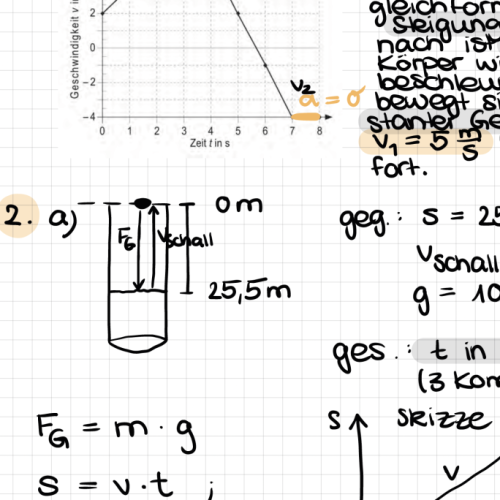 Geschwindigkeit v i
2
0
−2
−4
0 1 2 3 4 5 6 7 8
Zeit t in s
v₂
a = 0
gleichförm
Steigung
nach ist
Körper wi
beschleu
bewegt si
stanter Ge
v₁ = 5 m/s
fort.
2. a)
0 m
F_G
v_schall
25,5 m
geg.: s = 25
v_schall
g = 10
ges.: t in
(3 Kom
F_G = m · g
s = v · t ;
s
Skizze
v